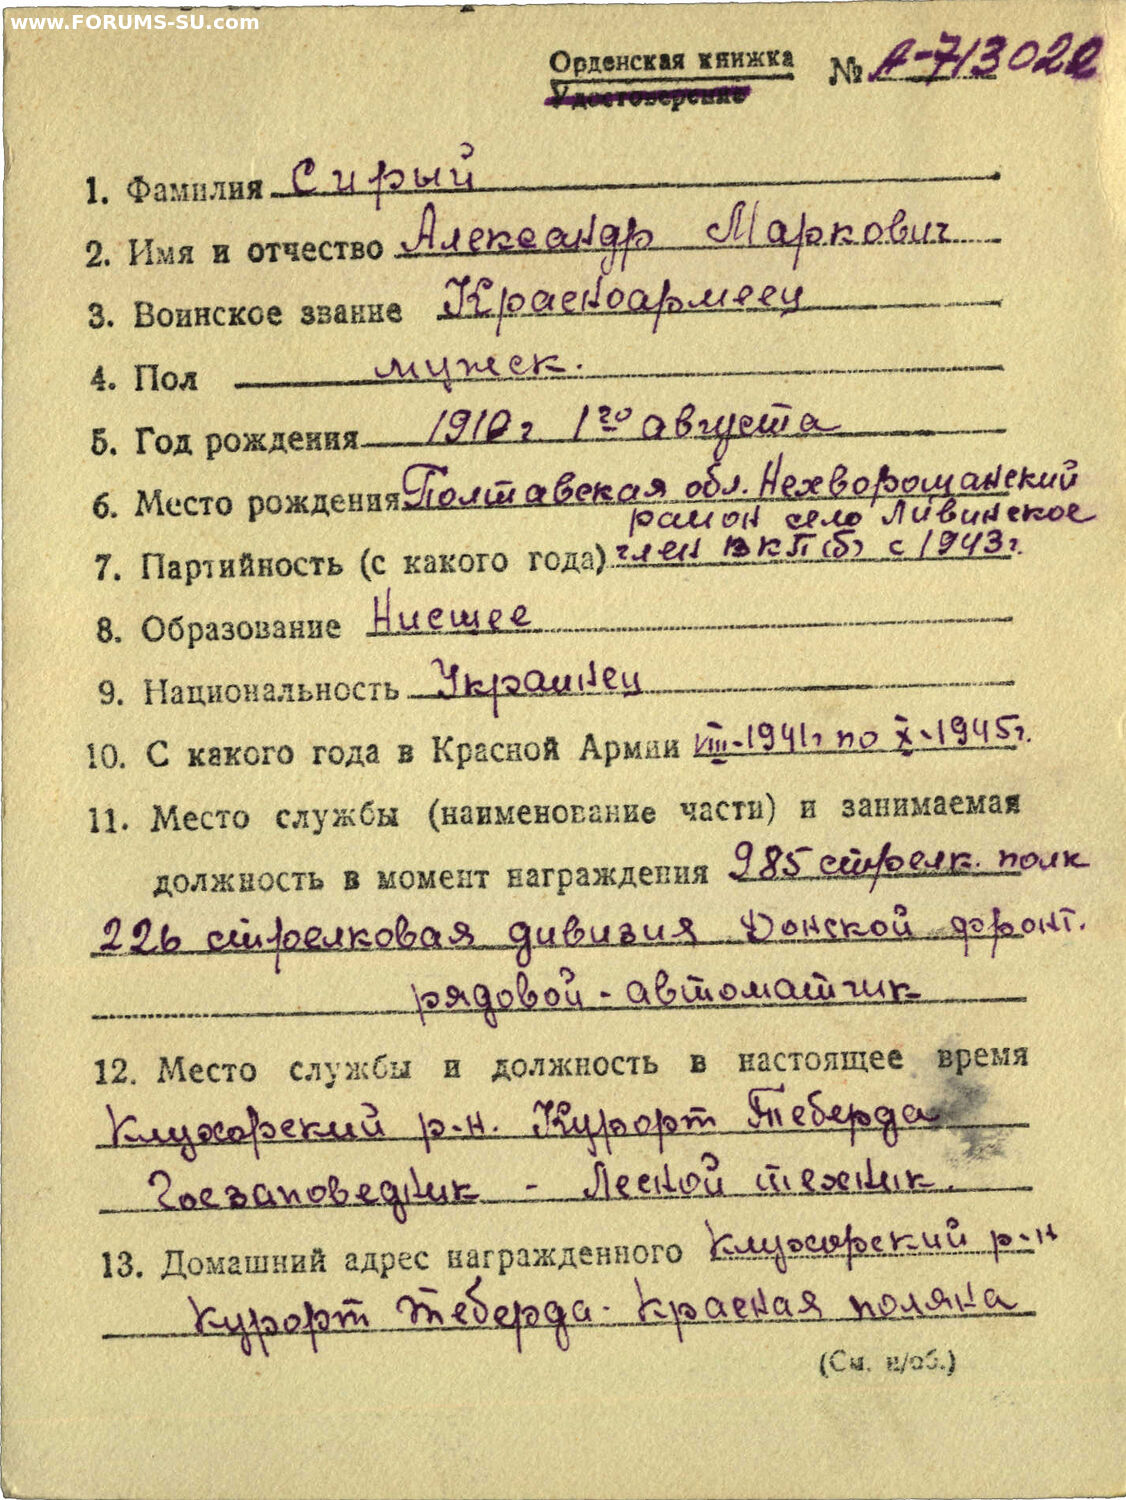 www.FORUMS-SU.com
Орденская книжка № А-713022
Удостоверение
1. Фамилия Сирый
2. Имя и отчество Александр Маркович
3. Воинское звание Красноармеец
4. Пол мужск.
5. Год рождения 1910 г 1го августа
6. Место рождения Полтавская обл. Нехворощанский
район село Ливинское
7. Партийность (с какого года) член ВКП(б) с 1943 г.
8. Образование Нисшее
9. Национальность Украинец
10. С какого года в Красной Армии VIII-1941 г по X-1945 г.
11. Место службы (наименование части) и занимаемая
должность в момент награждения 985 стрелк. полк
226 стрелковая дивизия Донской фронт.
рядовой - автоматчик
12. Место службы и должность в настоящее время
Клухорский р-н. Курорт Теберда
Госзаповедник - Лесной техник.
13. Домашний адрес награжденного Клухорский р-н
Курорт Теберда - Красная поляна
(См. н/об.)